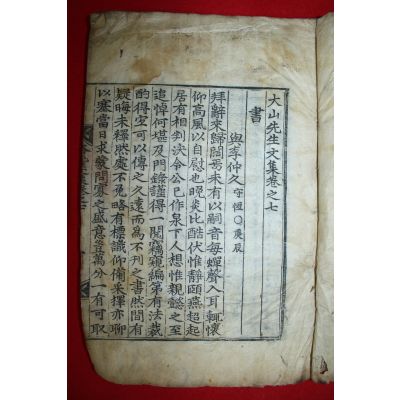 大山先生文集卷之七
書
與李仲久 守恒○庚辰
拜辭來歸闊焉未有以嗣音每蟬聲入耳輒懷
仰高風以自慰也晩炎比酷伏惟靜頤燕超起
居有相判決令公已作泉下人想惟親懿之至
追悼何堪及門錄謹得一閱竊窺編第有法裁
酌得宜可以傳之久遠而爲不刊之書然間有
疑晦未釋然處不免略有標識仰備采擇亦聊
以塞當日求敎問寡之盛意豈萬分一有可取